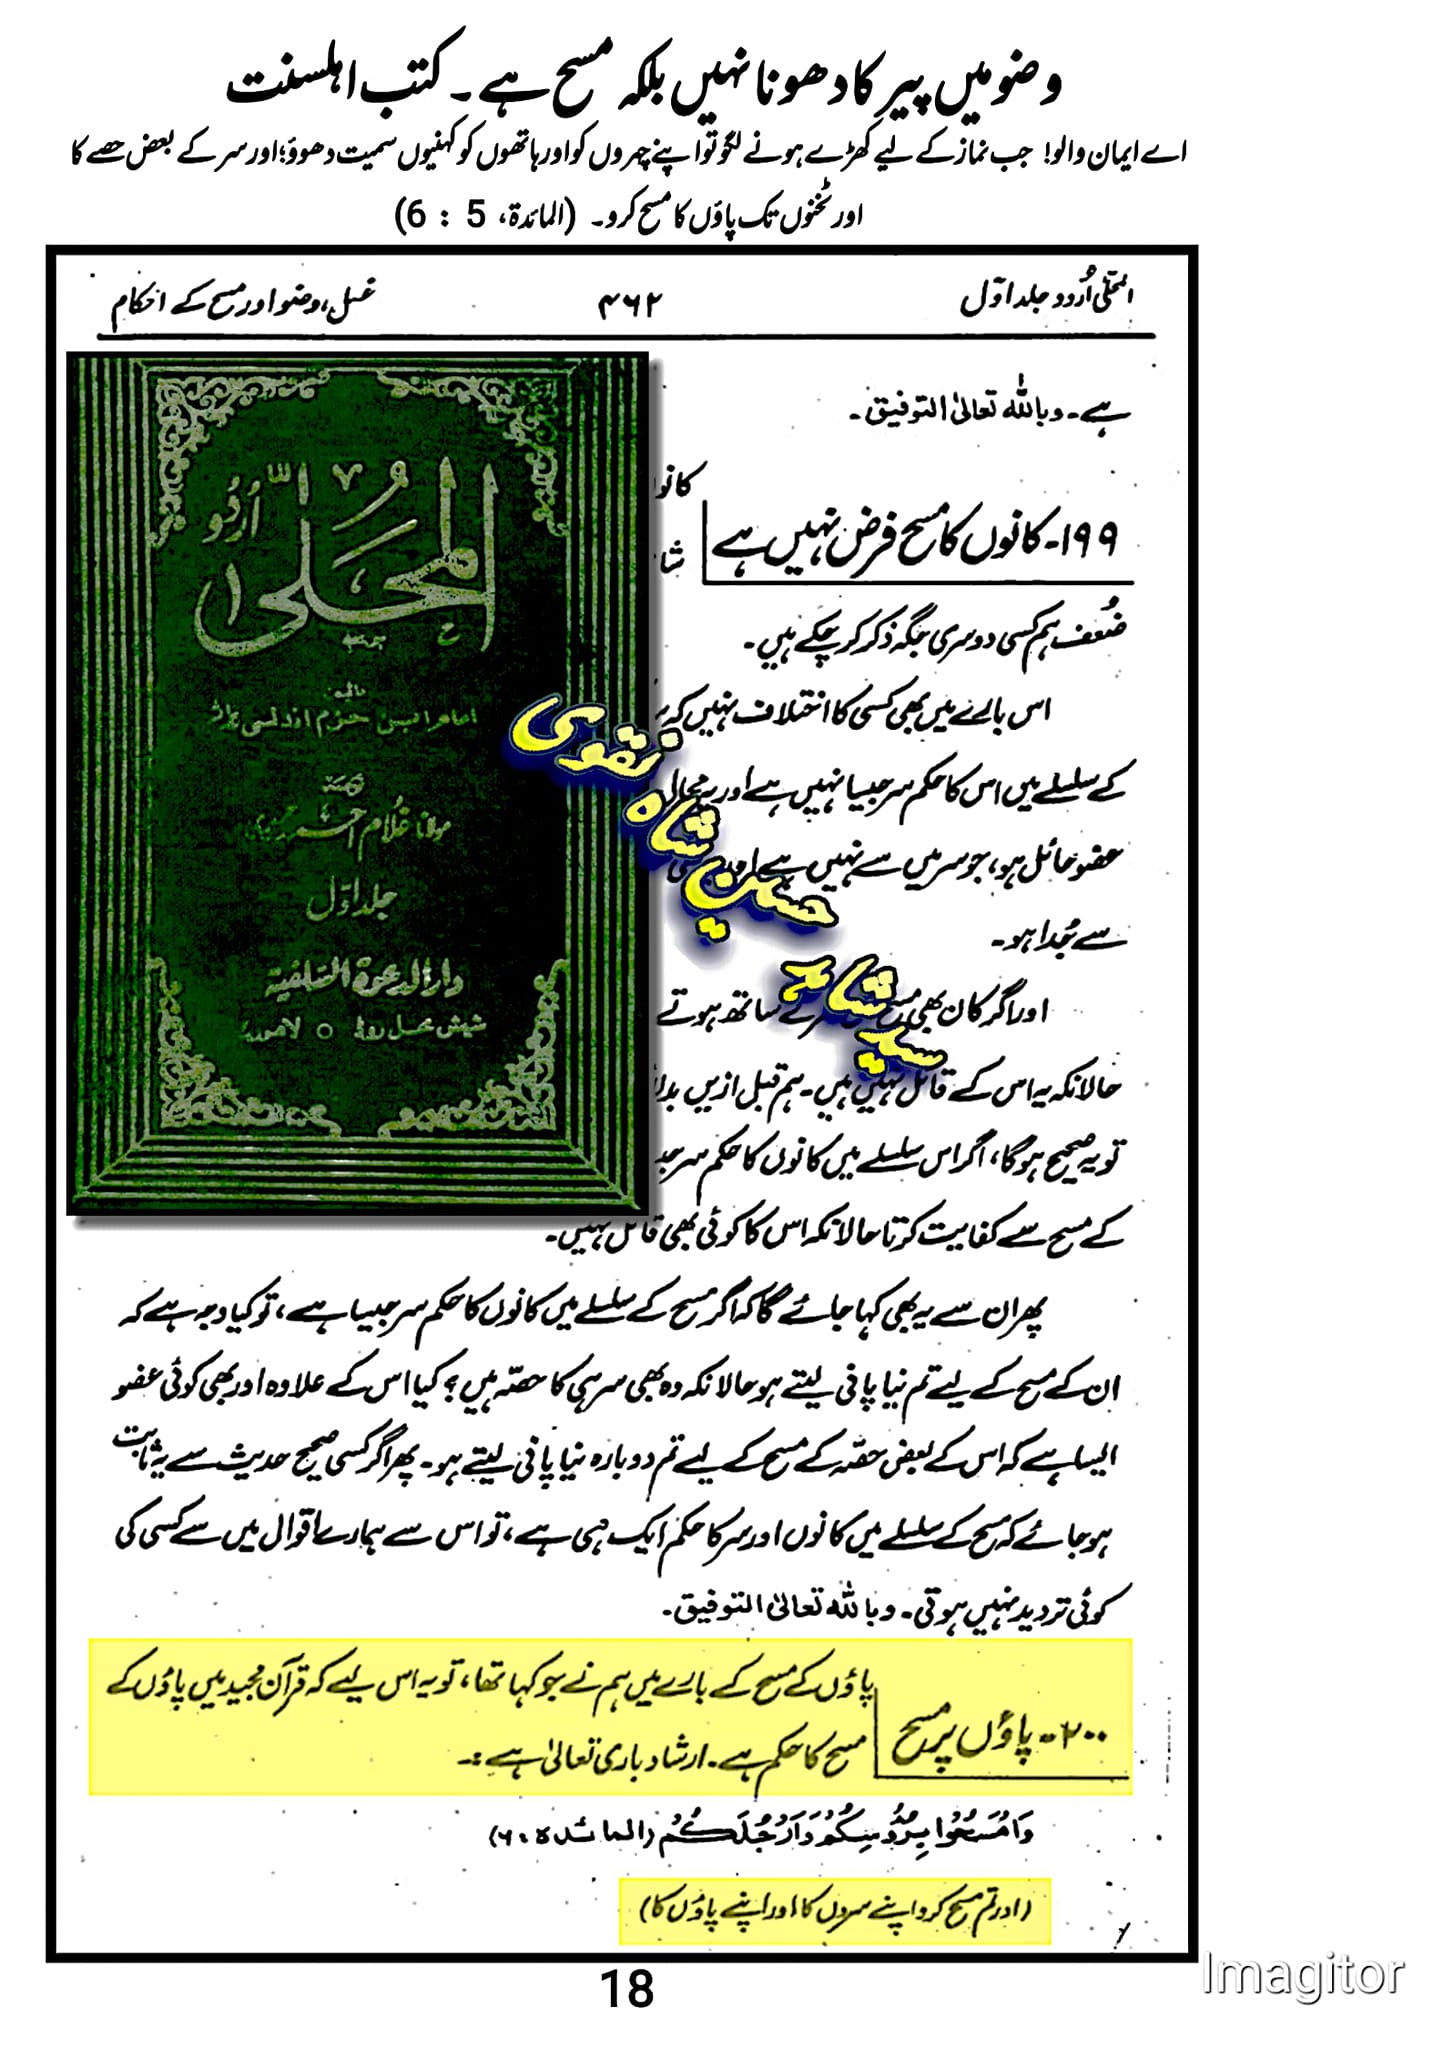 وضو میں پیر کا دھونا نہیں بلکہ مسح ہے۔ کتب اہلسنت
اے ایمان والو! جب نماز کے لیے کھڑے ہونے لگو تو اپنے چہروں کو اور ہاتھوں کو کہنیوں سمیت دھوؤ؛ اور سر کے بعض حصے کا
اور ٹخنوں تک پاؤں کا مسح کرو۔ (المائدة، 5 : 6)
المحلّٰی اُردو جلد اوّل
۴۶۲
غسل، وضو اور مسح کے احکام
ہے۔ وباللہ تعالیٰ التوفیق۔
۱۹۹۔ کانوں کا مسح فرض نہیں ہے
ضُعف ہم کسی دوسری جگہ ذکر کر چکے ہیں۔
اس بارے میں بھی کسی کا اختلاف نہیں کہ
کے سلسلے میں اس کا حکم سر جیسا نہیں ہے اور یہ
عضو حائل ہو، جو سر میں سے نہیں ہے
سے جُدا ہو۔
اور اگر کان بھی کے ساتھ ہوتے
حالانکہ یہ اس کے قائل نہیں ہیں۔ ہم قبل ازیں
تو یہ صحیح ہوگا، اگر اس سلسلے میں کانوں کا حکم سر
کے مسح سے کفایت کرتا حالانکہ اس کا کوئی بھی قائل نہیں۔
پھر ان سے یہ بھی کہا جائے گا کہ اگر مسح کے سلسلے میں کانوں کا حکم سر جیسا ہے، تو کیا وجہ ہے کہ
ان کے مسح کے لیے تم نیا پانی لیتے ہو حالانکہ وہ بھی سر ہی کا حصّہ ہیں؟ کیا اس کے علاوہ اور بھی کوئی عضو
ایسا ہے کہ اس کے بعض حصّہ کے مسح کے لیے تم دوبارہ نیا پانی لیتے ہو۔ پھر اگر کسی صحیح حدیث سے یہ ثابت
ہو جائے کہ مسح کے سلسلے میں کانوں اور سر کا حکم ایک ہی ہے، تو اس سے ہمارے اقوال میں سے کسی کی
کوئی تردید نہیں ہوتی۔ وباللہ تعالیٰ التوفیق۔
۲۰۰۔ پاؤں پر مسح
پاؤں کے مسح کے بارے میں ہم نے جو کہا تھا، تو یہ اس لیے کہ قرآن مجید میں پاؤں کے
مسح کا حکم ہے۔ ارشاد باری تعالیٰ ہے :۔
وَامْسَحُوْا بِرُءُوْسِكُمْ وَاَرْجُلَكُمْ (المائدہ ۵ : ۶)
(اور تم مسح کرو اپنے سروں کا اور اپنے پاؤں کا)
المحلّٰی اُردو
۱
امام ابن حزم اندلسی
مولانا غلام احمد حریری
جلد اوّل
دار الدعوة السلفیہ
شیش محل روڈ ○ لاہور
سید شاہد حسین شاہ نقوی
18
Imagitor